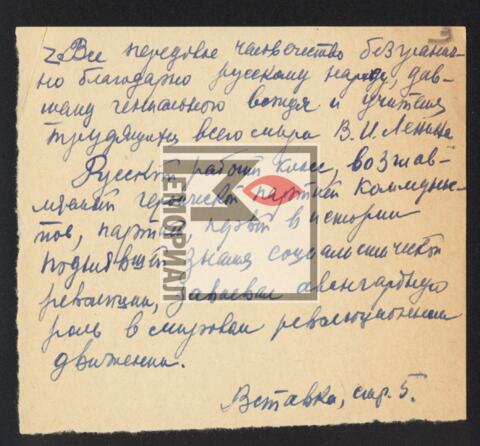 Z Все передовое человечество безгранич-
но благодарно русскому народу, дав-
шему гениального вождя и учителя
трудящихся всего мира В.И. Ленина
Русский рабочий класс, возглав-
ляемый героической партией коммунис-
тов, партией первой в истории
поднявшей знамя социалистической
революции, завоевал авангардную
роль в мировом революционном
движении.
Вставка, стр. 5.
ТЕКТОРИАЛ